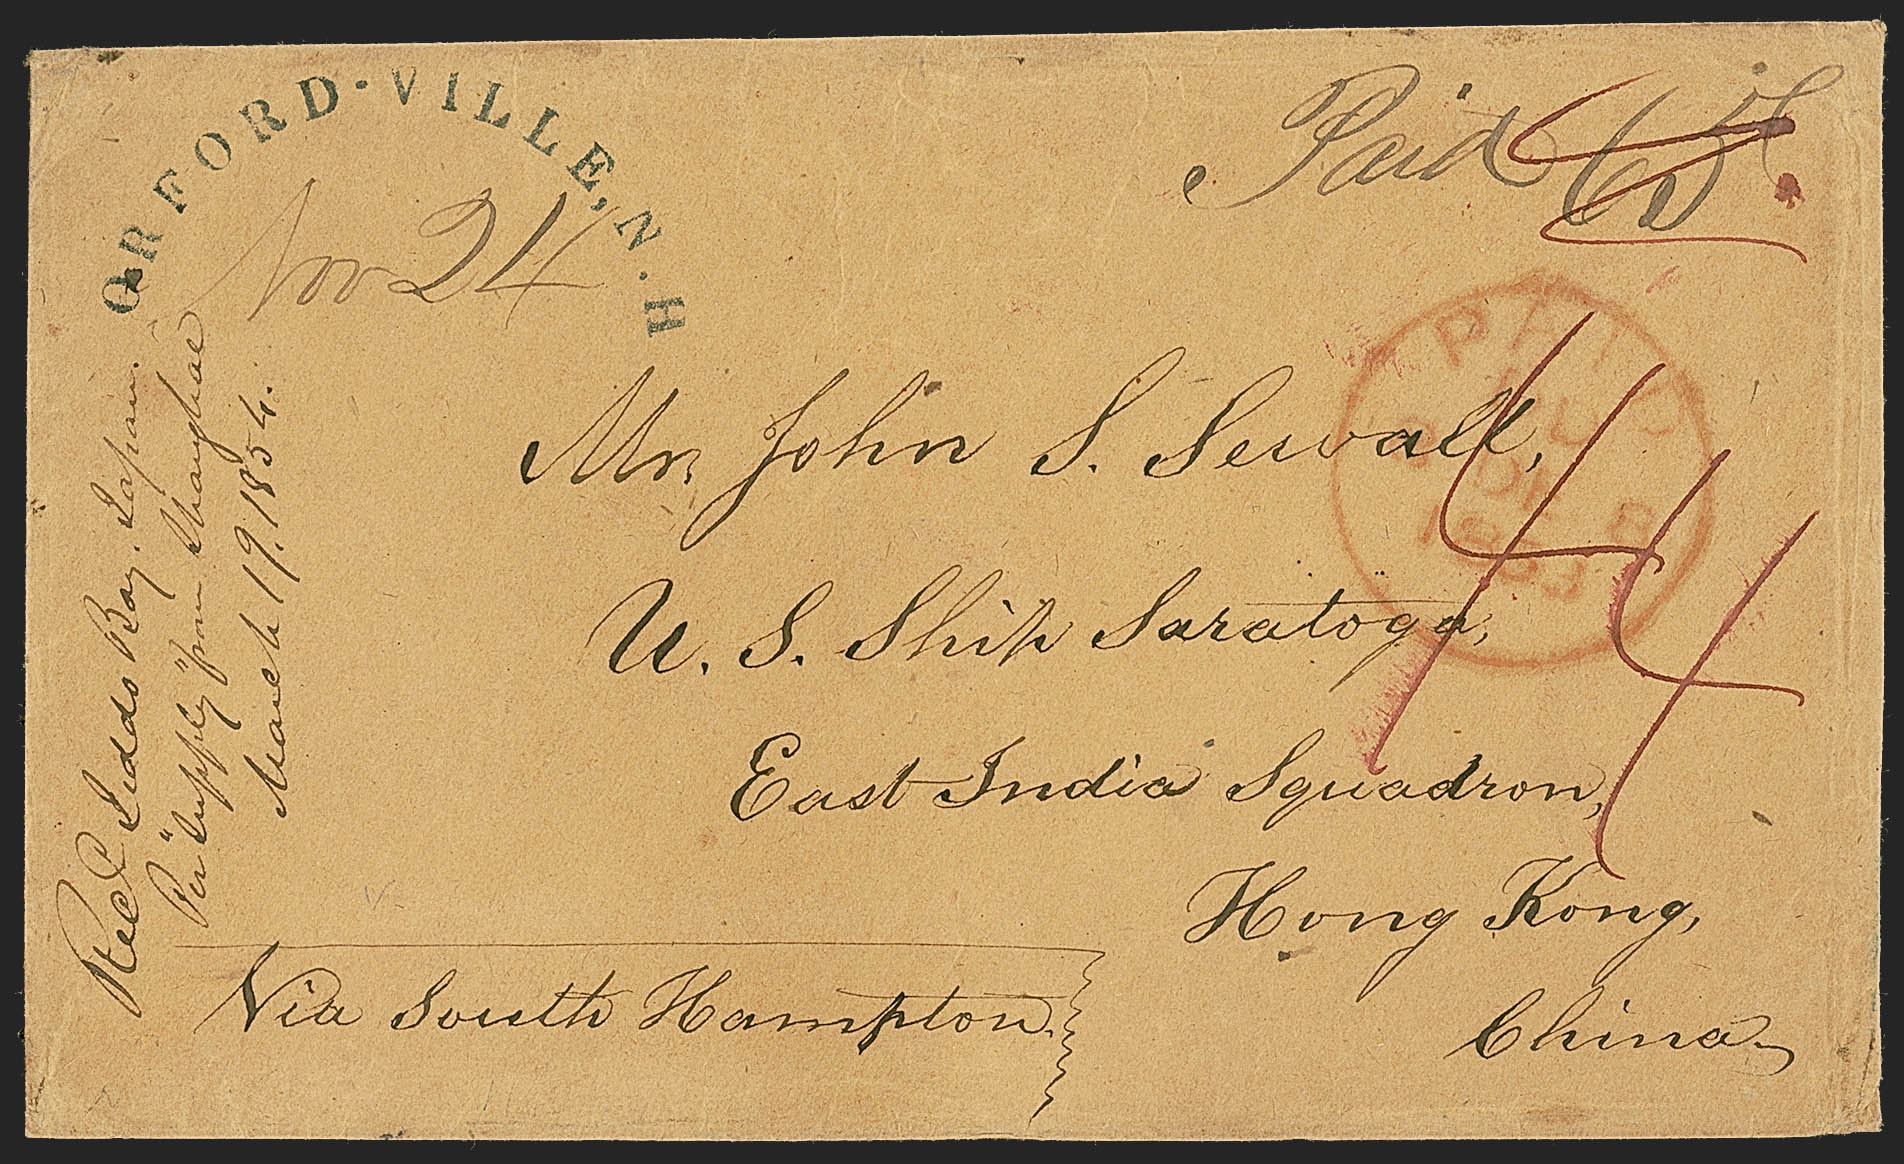 ORFORD-VILLE, N.H
Nov 24
Paid 65
PAID
DE 8
1853
44
Mr. John S. Sewall,
U. S. Ship Saratoga,
East India Squadron,
Hong Kong,
China.
Via South Hampton.
Recd Jeddo Bay. Japan.
Per "Supply" from Shanghae
March 19. 1854.